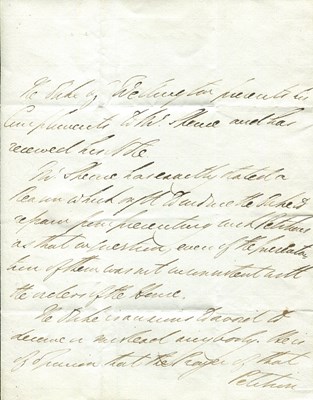 The Duke of Wellington presents his
Compliments to Mr. Spence and has
received his Note.
Mr Spence has exactly stated a
Reason which ought to induce the Duke to
refrain from presenting such Petitions
as that in question, even if the presentation
of them was not inconsistent with
the orders of the House.
The Duke is anxious to avoid to
deceive or mislead anybody. He is
of opinion that the Prayer of that
Petition